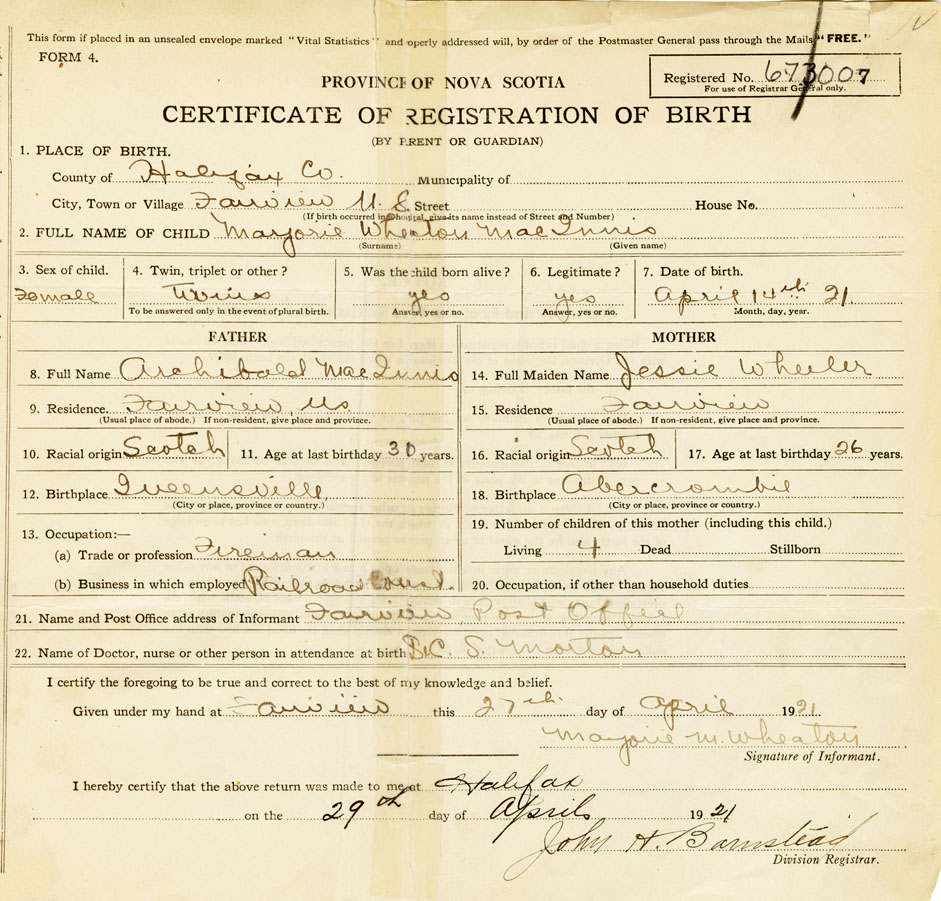 This form if placed in an unsealed envelope marked "Vital Statistics" and operly addressed will, by order of the Postmaster General pass through the Mails "FREE."
FORM 4.
Registered No. 673007
For use of Registrar General only.
PROVINCE OF NOVA SCOTIA
CERTIFICATE OF REGISTRATION OF BIRTH
(BY PARENT OR GUARDIAN)
1. PLACE OF BIRTH.
County of Halifax Co. Municipality of
City, Town or Village Fairview N. S Street House No.
(If birth occurred in hospital, give its name instead of Street and Number)
2. FULL NAME OF CHILD Marjorie Wheaton MacInnis
(Surname) (Given name)
3. Sex of child. 4. Twin, triplet or other? 5. Was the child born alive? 6. Legitimate? 7. Date of birth.
Female Twins yes yes April 14th 21
To be answered only in the event of plural birth. Answer, yes or no. Answer, yes or no. Month, day, year.
FATHER MOTHER
8. Full Name Archibald MacInnis 14. Full Maiden Name Jessie Wheeler
9. Residence. Fairview, Ns 15. Residence Fairview
(Usual place of abode.) If non-resident, give place and province. (Usual place of abode.) If non-resident, give place and province.
10. Racial origin Scotch 11. Age at last birthday 30 years. 16. Racial origin Scotch 17. Age at last birthday 26 years.
12. Birthplace Queensville, 18. Birthplace Abercrombie
(City or place, province or country.) (City or place, province or country.)
13. Occupation:— 19. Number of children of this mother (including this child.)
(a) Trade or profession Fireman Living 4 Dead Stillborn
(b) Business in which employed Railroad 20. Occupation, if other than household duties
21. Name and Post Office address of Informant Fairview Post Office
22. Name of Doctor, nurse or other person in attendance at birth C. S. Morton
I certify the foregoing to be true and correct to the best of my knowledge and belief.
Given under my hand at Fairview this 27th day of April 1921
Marjorie M. Wheaton
Signature of Informant.
I hereby certify that the above return was made to me at Halifax
on the 29th day of April 1921
John H. Barnstead
Division Registrar.